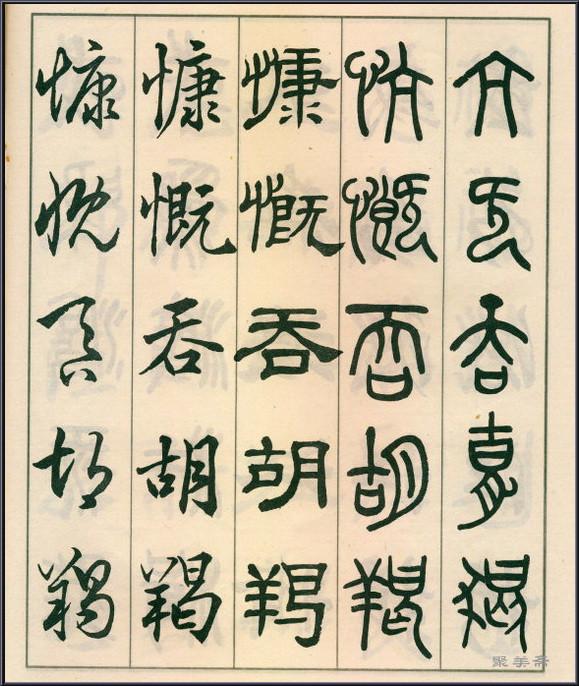 亢旡吞胡羯
忼慨吞胡羯
慷慨吞胡羯
慷慨吞胡羯
慷慨吞胡羯
聚美斋